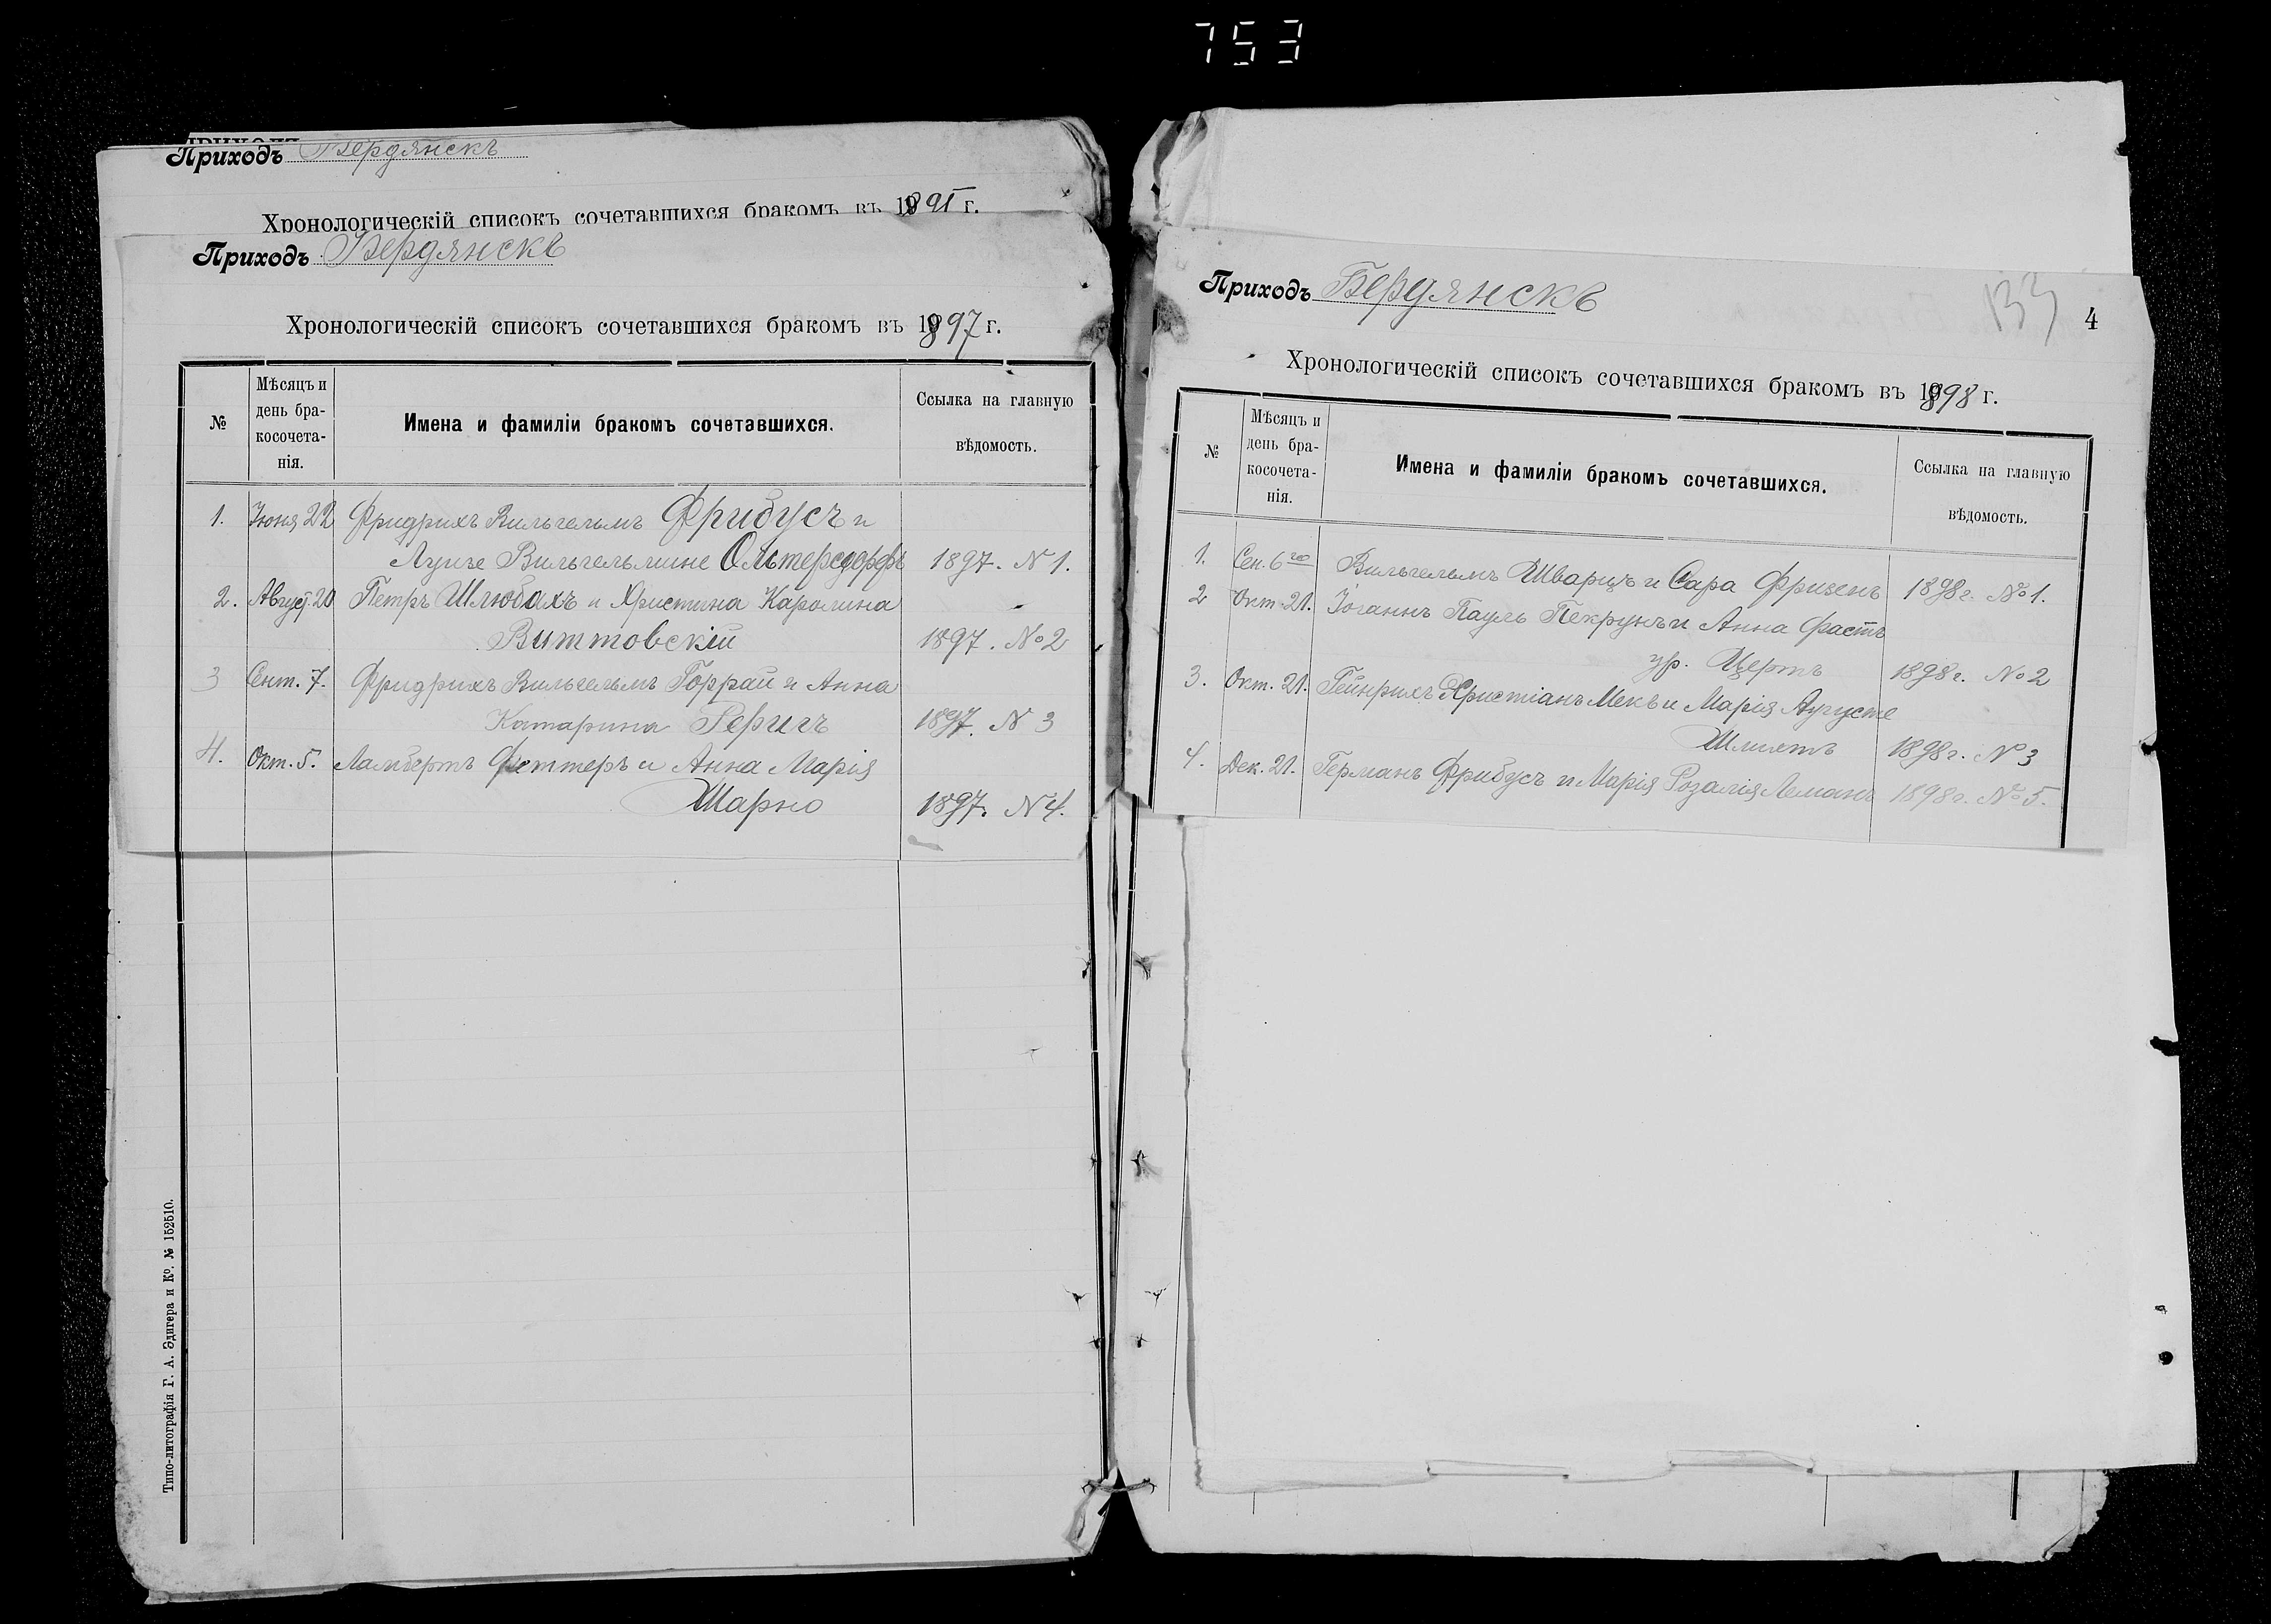 753
Приходъ Бердянскъ
Хронологическій списокъ сочетавшихся бракомъ въ 189 г.
Приходъ Бердянскъ
Хронологическій списокъ сочетавшихся бракомъ въ 1897 г.
№
Мѣсяцъ и
день бра-
косочета-
нія.
Имена и фамиліи бракомъ сочетавшихся.
Ссылка на главную
вѣдомость.
1. Іюня 22 Фридрихъ Вильгельмъ Фрибусъ и
Луизе Вильгельмине Ольтерсдорфъ 1897. N 1.
2. Август. 20 Петръ Шлюбахъ и Христина Каролина
Виттовскій 1897. No 2
3 Сент. 7. Фридрихъ Вильгельмъ Горрай и Анна
Катарина 1897. N 3
4. Окт. 5. Ламбертъ Феттеръ и Анна Марія
Шарно 1897. N 4.
Типо-литографія Г. А. Эдигера и Ко. № 152510.
133
4
Приходъ Бердянскъ
Хронологическій списокъ сочетавшихся бракомъ въ 1898 г.
№
Мѣсяцъ и
день бра-
косочета-
нія.
Имена и фамиліи бракомъ сочетавшихся.
Ссылка на главную
вѣдомость.
1. Сен. 6го Вильгельмъ Шварцъ и Сара Фризенъ 1898г. No 1.
2 Окт. 21. Іоганнъ Пауль Пекрунъ и Анна Фастъ
ур. Цертъ 1898г. No 2
3. Окт. 21. Гейнрихъ Христіанъ Мекъ и Марія Аугусте
Шмидтъ 1898г. No 3
4. Дек. 21. Германъ Фрибусъ и Марія Розалія Леманъ 1898г. No 5.